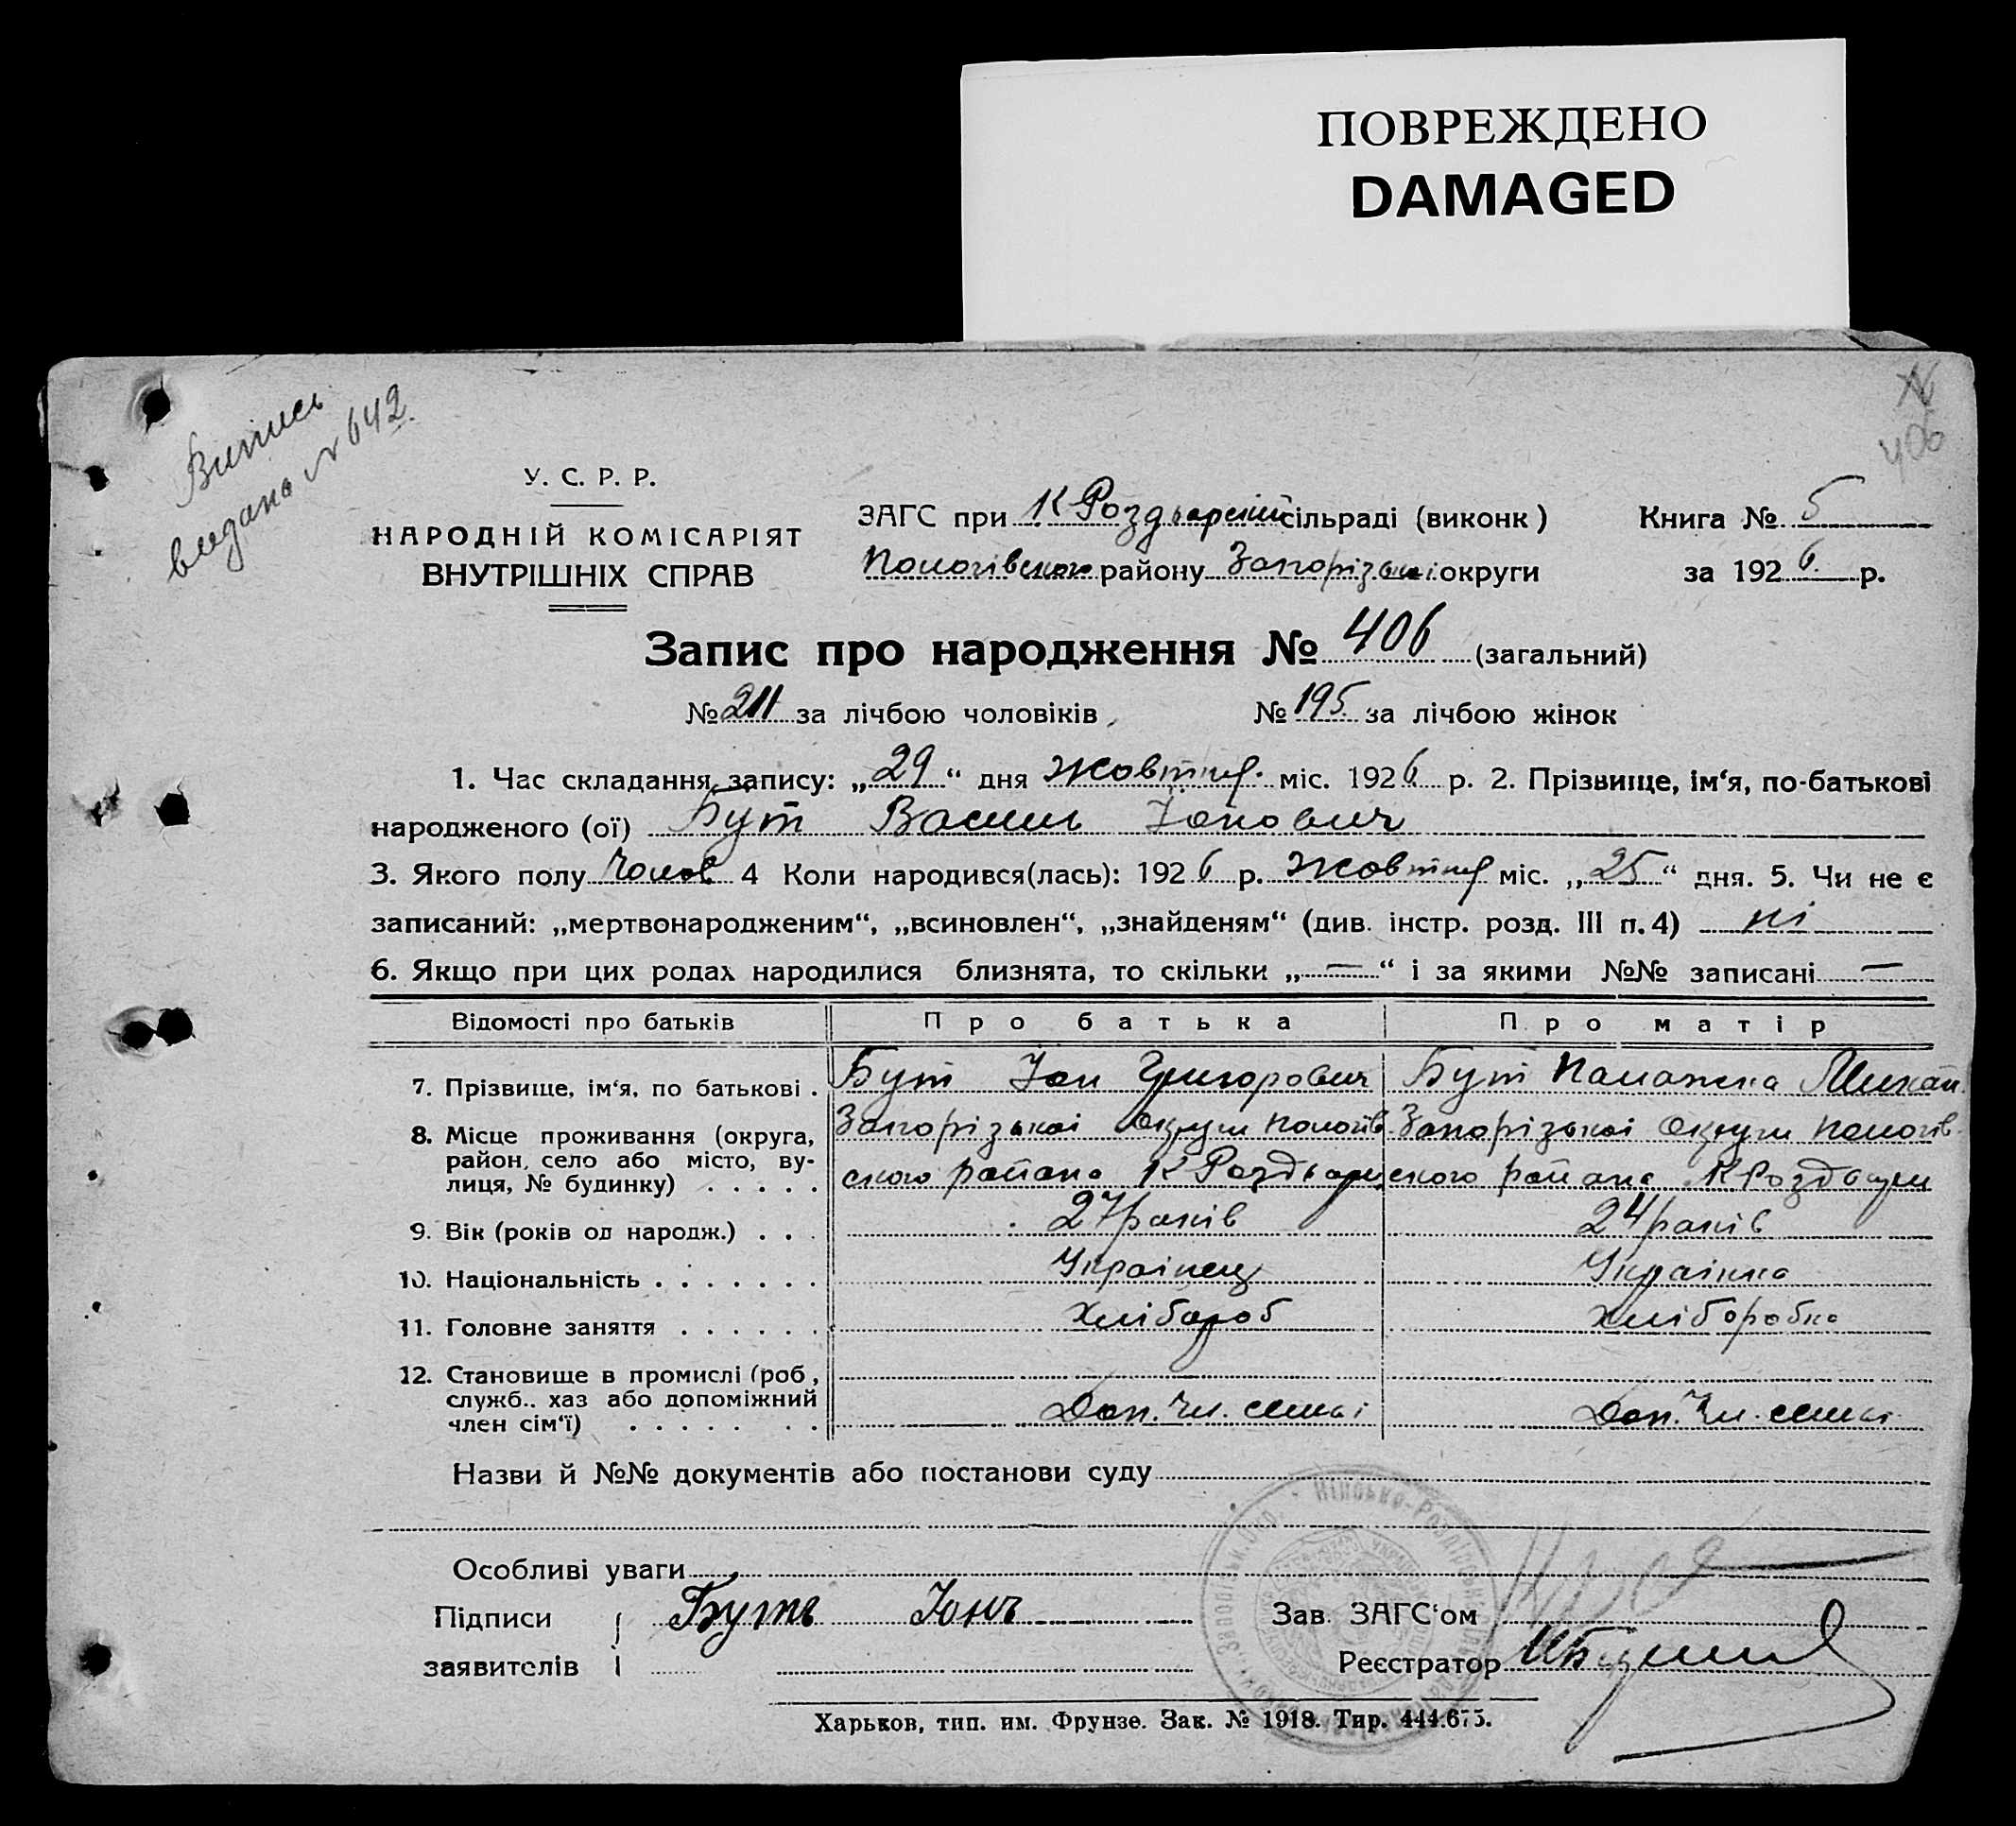 ПОВРЕЖДЕНО
DAMAGED
Випись
видана № 642
№
406
У. С. Р. Р.
НАРОДНІЙ КОМІСАРІЯТ
ВНУТРІШНІХ СПРАВ
ЗАГС при К Роздорскій сільраді (виконк)
Пологівського району Запорізької округи
Книга № 5
за 1926 р.
Запис про народження № 406 (загальний)
№ 211 за лічбою чоловіків, № 195 за лічбою жінок
1. Час складання запису: „29“ дня жовтня міс. 1926 р. 2. Прізвище, ім‘я, по-батькові
народженого (ої) Бут Василь Іонович
3. Якого полу Чолов 4 Коли народився(лась): 1926 р. жовтня міс. „25“ дня. 5. Чи не є
записаний: „мертвонародженим“, „всиновлен“, „знайденям“ (див. інстр. розд. III п. 4) ні
6. Якщо при цих родах народилися близнята, то скільки „—“ і за якими №№ записані —
Відомості про батьків Про батька Про матір
7. Прізвище, ім‘я, по батькові . Бут Іон Григорович Бут Палажка Михай.
8. Місце проживання (округа, Запорізької Округи Пологів- Запорізької Округи Пологів-
район, село або місто, ву- ского района К Роздори ского района К Роздори
лиця, № будинку) . . . . .
9. Вік (років од народж.) . . . 27 років 24 років
10. Національність . . . . . . . Українец Українка
11. Головне заняття . . . . . . Хлібороб Хлібробка
12. Становище в промислі (роб,
служб.. хаз або допоміжний Доп. Чл. семьі Доп. Чл. семьі
член сім‘ї) . . . . . . .
Назви й №№ документів або постанови суду
Особливі уваги
Підписи Бутъ Іонъ Зав. ЗАГС‘ом
заявителів Реєстратор
Харьков, тип. им. Фрунзе. Зак. № 1918. Тир. 444.675.